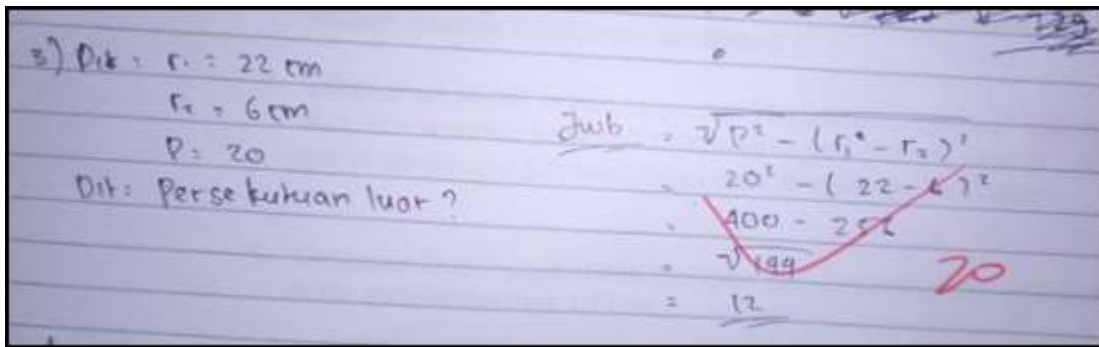 3) Dik : r₁ = 22 cm
r₂ = 6 cm
P = 20
Dit : Persekutuan luar ?
Jwb = √P² - (r₁ - r₂)²
= 20² - (22 - 6)²
= 400 - 256
= √144
= 12
20